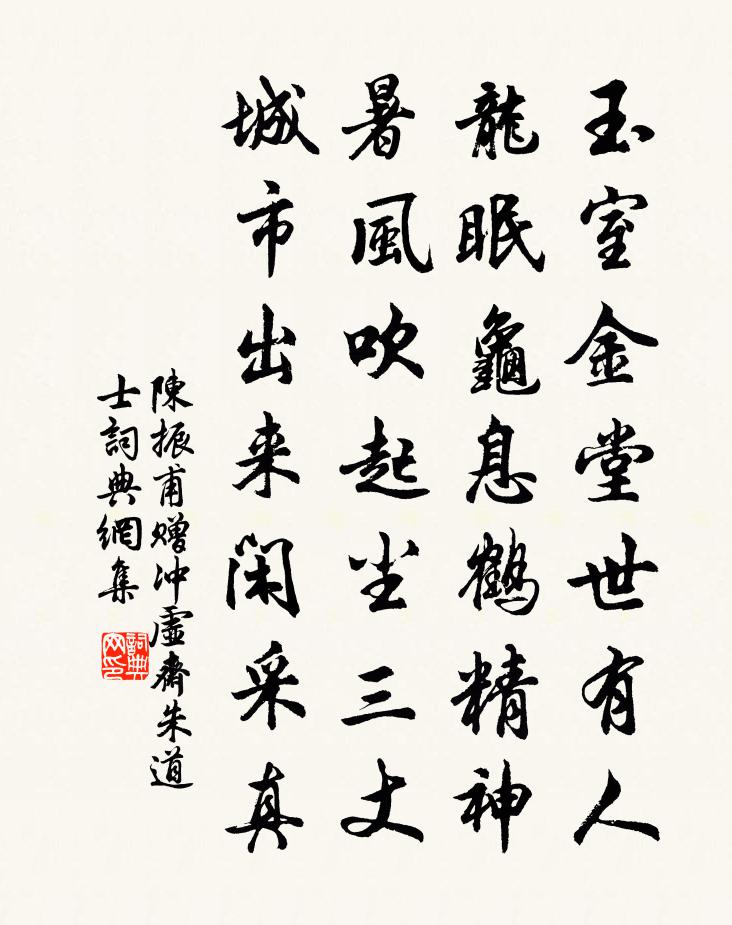 玉室金堂世有人
龍眠龜息鶴精神
暑風吹起尘三丈
城市出来閑采真
陳振甫赠冲虛齋朱道
士詞典網集
詞典网印